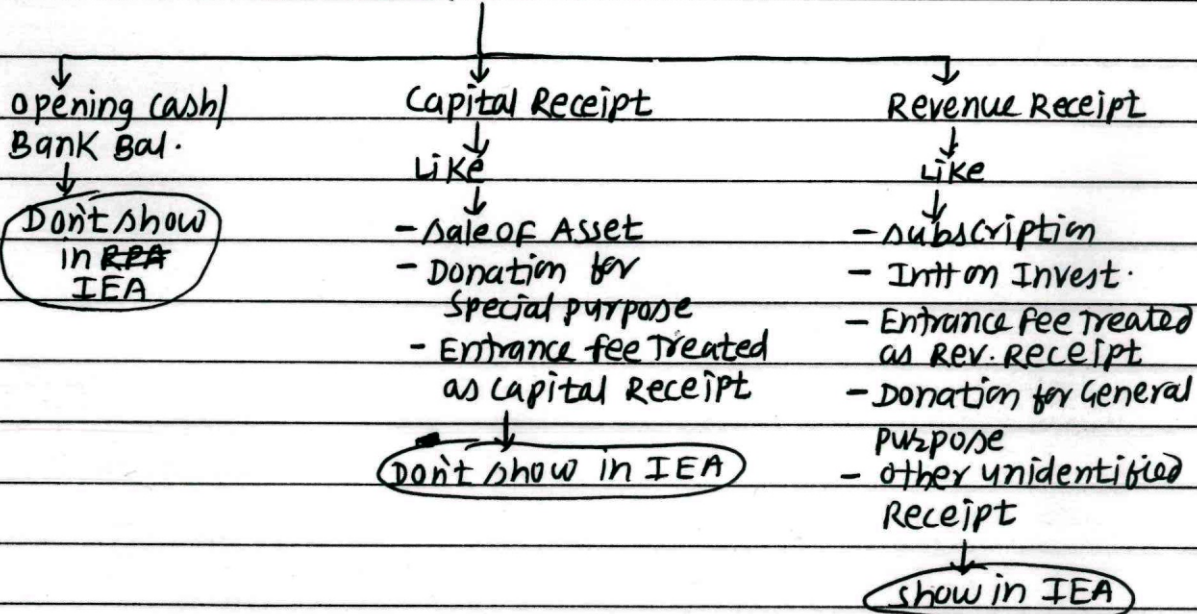 opening cash/
Bank Bal.
Don't show
in RPA
IEA
Capital Receipt
Like
- sale of Asset
- Donation for
special purpose
- Entrance fee Treated
as capital Receipt
Don't show in IEA
Revenue Receipt
Like
- subscription
- Intt on Invest.
- Entrance fee Treated
as Rev. Receipt
- Donation for General
purpose
- other unidentified
Receipt
show in IEA